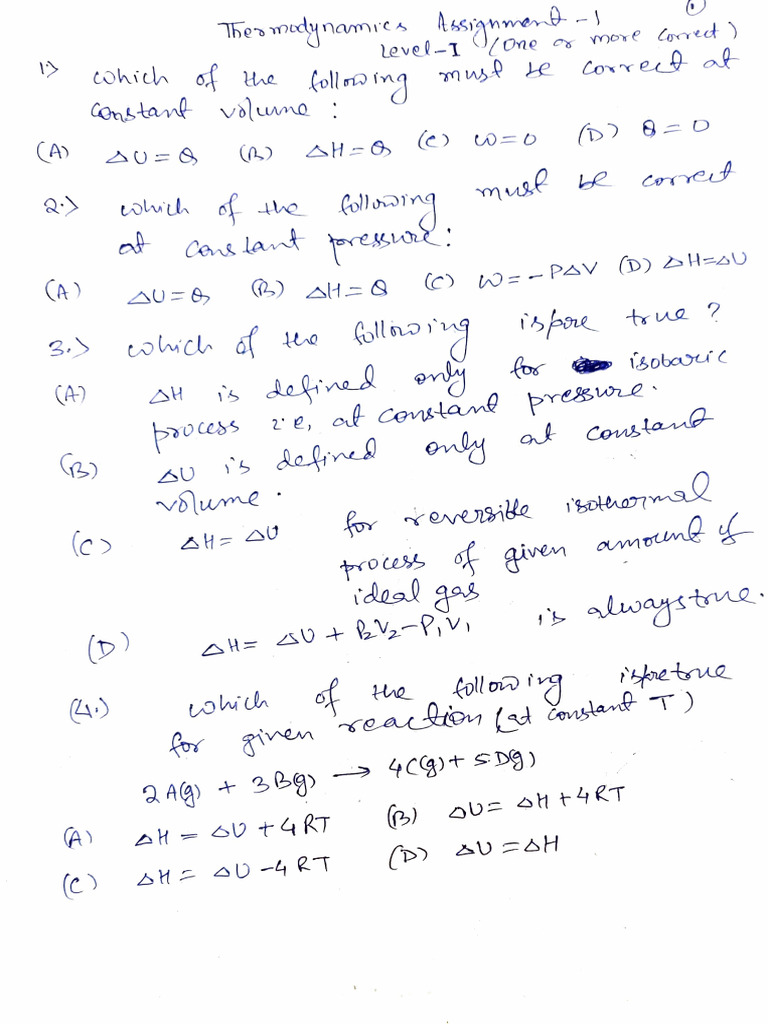 ①
Thermodynamics Assignment-1
Level-I (One or more correct)
1> which of the following must be correct at
constant volume :
(A) ΔU = Q (B) ΔH = Q (C) W = 0 (D) Q = 0
2.> which of the following must be correct
at constant pressure:
(A) ΔU = Q (B) ΔH = Q (C) W = -PΔV (D) ΔH=ΔU
3.> which of the following is/are true ?
(A) ΔH is defined only for isobaric
process i.e, at constant pressure.
(B) ΔU is defined only at constant
volume.
(C) ΔH = ΔU for reversible isothermal
process of given amount of
ideal gas
(D) ΔH = ΔU + P₂V₂-P₁V₁ is always true.
(4.) which of the following is/are true
for given reaction (at constant T)
2A(g) + 3B(g) → 4C(g) + 5D(g)
(A) ΔH = ΔU + 4RT (B) ΔU = ΔH + 4RT
(C) ΔH = ΔU - 4RT (D) ΔU = ΔH